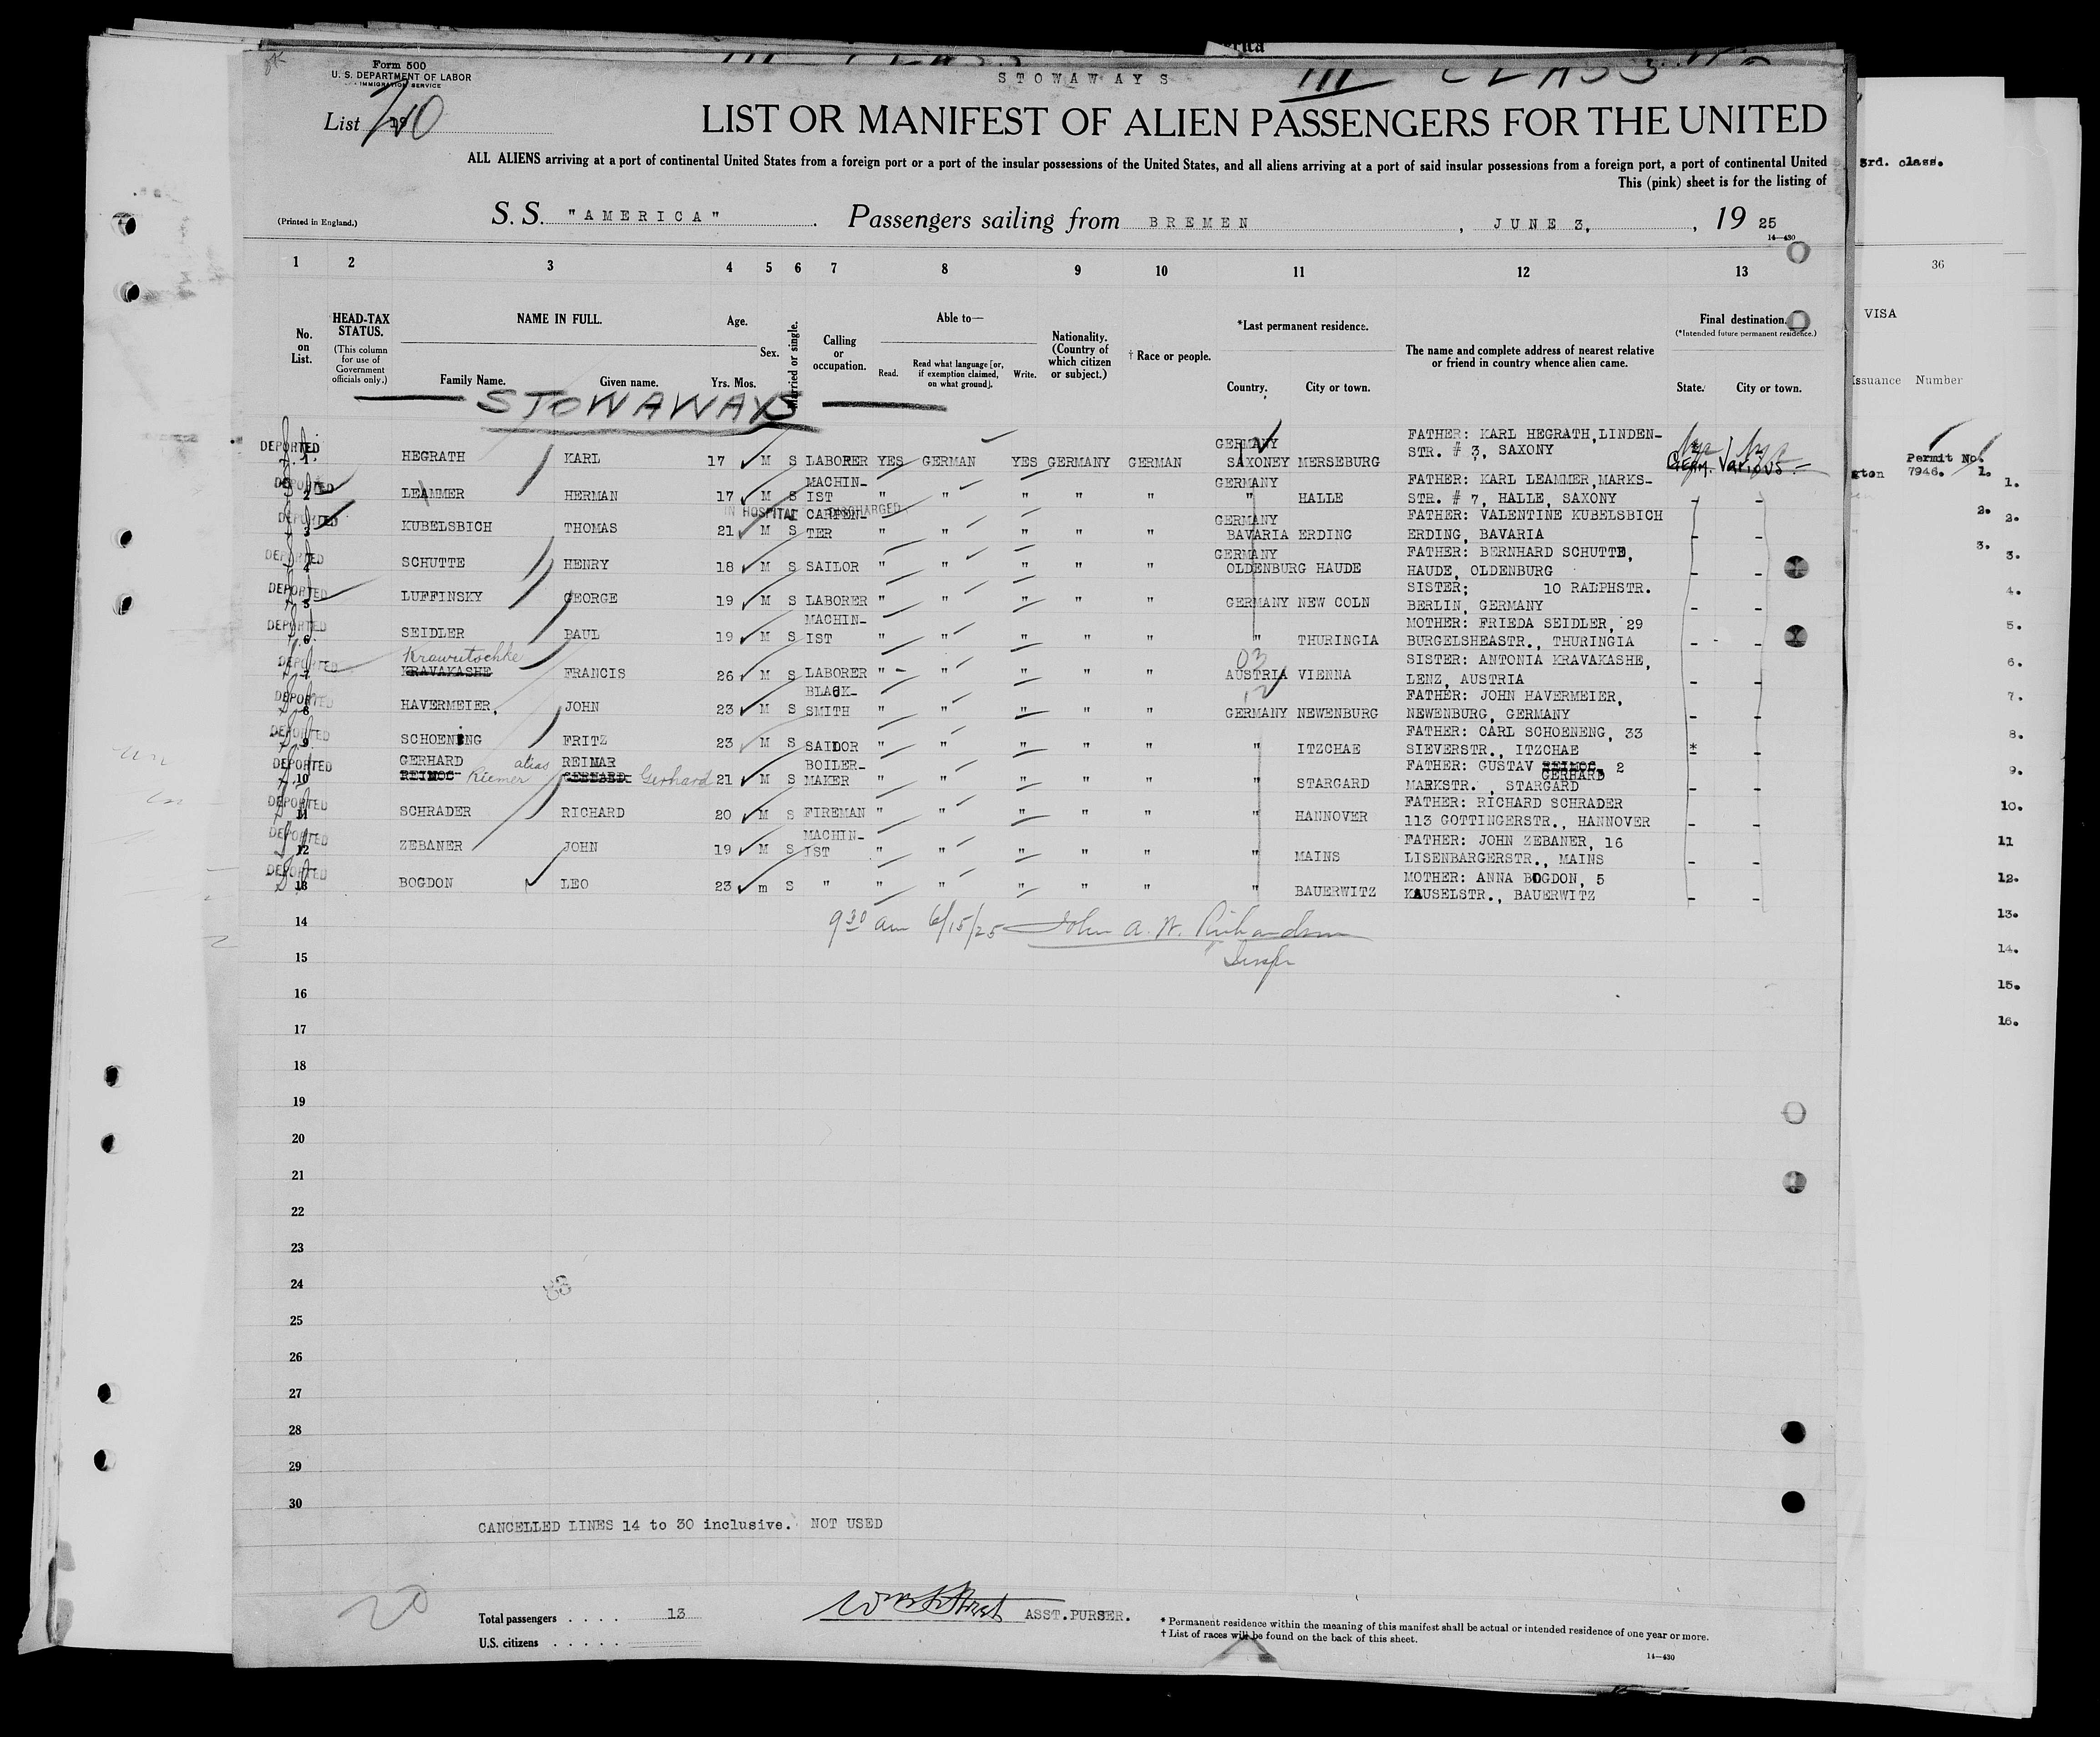 Form 500
U. S. DEPARTMENT OF LABOR
IMMIGRATION SERVICE
STOWAWAYS
III CLASS
List
LIST OR MANIFEST OF ALIEN PASSENGERS FOR THE UNITED
ALL ALIENS arriving at a port of continental United States from a foreign port or a port of the insular possessions of the United States, and all aliens arriving at a port of said insular possessions from a foreign port, a port of continental United
This (pink) sheet is for the listing of
(Printed in England.) S. S. "AMERICA" . Passengers sailing from BREMEN , JUNE 3, , 19 25
14—430
1 2 3 4 5 6 7 8 9 10 11 12 13
No. on List.
HEAD-TAX STATUS.
(This column for use of Government officials only.)
NAME IN FULL.
Family Name. Given name.
Age.
Yrs. Mos.
Sex.
Married or single.
Calling or occupation.
Able to—
Read. Read what language [or, if exemption claimed, on what ground]. Write.
Nationality. (Country of which citizen or subject.)
† Race or people.
*Last permanent residence.
Country. City or town.
The name and complete address of nearest relative or friend in country whence alien came.
Final destination.
(*Intended future permanent residence.)
State. City or town.
STOWAWAYS
DEPORTED 1 HEGRATH KARL 17 M S LABORER YES GERMAN YES GERMANY GERMAN GERMANY SAXONEY MERSEBURG FATHER: KARL HEGRATH,LINDEN-
STR. # 3, SAXONY Various
DEPORTED 2 LEAMMER HERMAN 17 M S MACHIN-IST " " " " " GERMANY " HALLE FATHER: KARL LEAMMER,MARKS-
STR. # 7, HALLE, SAXONY - -
IN HOSPITAL DISCHARGED
DEPORTED 3 KUBELSBICH THOMAS 21 M S CARPEN-TER " " " " " GERMANY BAVARIA ERDING FATHER: VALENTINE KUBELSBICH
ERDING, BAVARIA - -
DEPORTED 4 SCHUTTE HENRY 18 M S SAILOR " " " " " GERMANY OLDENBURG HAUDE FATHER: BERNHARD SCHUTTE,
HAUDE, OLDENBURG - -
DEPORTED 5 LUFFINSKY GEORGE 19 M S LABORER " " " " " GERMANY NEW COLN SISTER; 10 RALPHSTR.
BERLIN, GERMANY - -
DEPORTED 6 SEIDLER PAUL 19 M S MACHIN-IST " " " " " " THURINGIA MOTHER: FRIEDA SEIDLER, 29
BURGELSHEASTR., THURINGIA - -
Krawutschke
DEPORTED 7 KRAVAKASHE FRANCIS 26 M S LABORER " " " " " 03 AUSTRIA VIENNA SISTER: ANTONIA KRAVAKASHE,
LENZ, AUSTRIA - -
DEPORTED 8 HAVERMEIER, JOHN 23 M S BLACK-SMITH " " " " " GERMANY NEWENBURG FATHER: JOHN HAVERMEIER,
NEWENBURG, GERMANY - -
DEPORTED 9 SCHOENING FRITZ 23 M S SAILOR " " " " " " ITZCHAE FATHER: CARL SCHOENENG, 33
SIEVERSTR., ITZCHAE * -
DEPORTED 10 GERHARD alias REIMAR
REIMOC Riemer GERHARD Gerhard 21 M S BOILER-MAKER " " " " " " STARGARD FATHER: GUSTAV REIMOC, 2
GERHARD
MARKSTR. , STARGARD - -
DEPORTED 11 SCHRADER RICHARD 20 M S FIREMAN " " " " " " HANNOVER FATHER: RICHARD SCHRADER
113 GOTTINGERSTR., HANNOVER - -
DEPORTED 12 ZEBANER JOHN 19 M S MACHIN-IST " " " " " " MAINS FATHER: JOHN ZEBANER, 16
LISENBARGERSTR., MAINS - -
DEPORTED 13 BOGDON LEO 23 m S " " " " " " " BAUERWITZ MOTHER: ANNA BOGDON, 5
KAUSELSTR., BAUERWITZ - -
14 9 30 am 6/15/25 John A. W. Richardson
15 Inspr
16
17
18
19
20
21
22
23
24
25
26
27
28
29
30
CANCELLED LINES 14 to 30 inclusive. NOT USED
20
Total passengers . . . . 13
ASST.PURSER.
U.S. citizens . . . . .
* Permanent residence within the meaning of this manifest shall be actual or intended residence of one year or more.
† List of races will be found on the back of this sheet.
14—430
3rd. class.
36
VISA
Issuance Number
Permit No.
gton 7946. 1.
2.
3.
1.
2.
3.
4.
5.
6.
7.
8.
9.
10.
11
12.
13.
14.
15.
16.